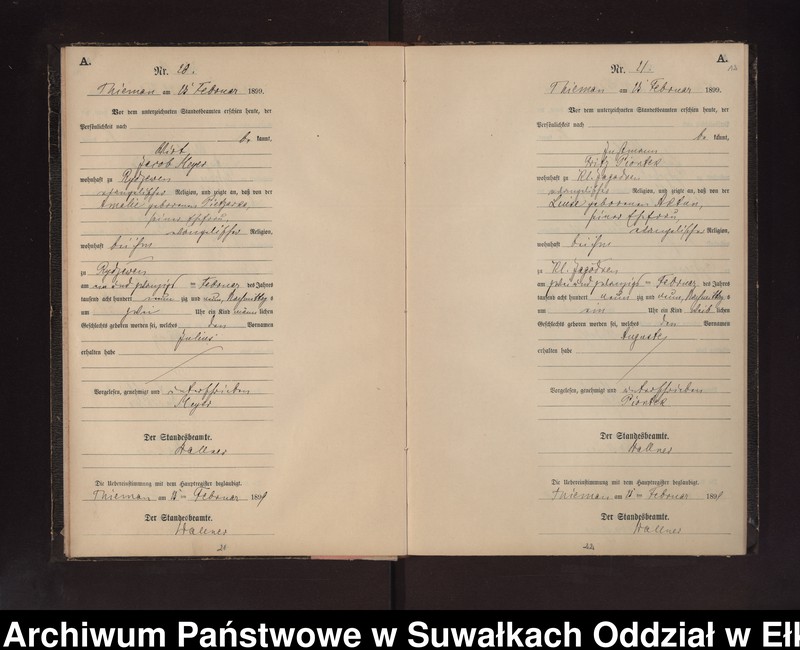 A.
Nr. 20.
Thieman am 25 Februar 1899.
Vor dem unterzeichneten Standesbeamten erschien heute, der
Persönlichkeit nach
be kannt,
Wirt
Jacob Meyer
wohnhaft zu Rydzewen
evangelischer Religion, und zeigte an, daß von der
Amalie geborenen
seiner Ehefrau,
evangelischer Religion,
wohnhaft bei ihm
zu Rydzewen
am zwanzigst en Februar des Jahres
tausend acht hundert neun zig und neun, Nachmittag s
um Uhr ein Kind männ lichen
Geschlechts geboren worden sei, welches den Vornamen
Julius
erhalten habe
Vorgelesen, genehmigt und unterschrieben
Meyer
Der Standesbeamte.
Wallner
Die Uebereinstimmung mit dem Hauptregister beglaubigt.
Thieman am 25 ten Februar 1899
Der Standesbeamte.
Wallner
A.
Nr. 21.
Thieman am 25 Februar 1899.
Vor dem unterzeichneten Standesbeamten erschien heute, der
Persönlichkeit nach
be kannt,
Instmann
Fritz Piontek
wohnhaft zu Kl. Jagodzen
evangelischer Religion, und zeigte an, daß von der
Luise geborenen
seiner Ehefrau,
evangelischer Religion,
wohnhaft bei ihm
zu Kl. Jagodzen
am zwei und zwanzigst en Februar des Jahres
tausend acht hundert neun zig und neun, Nachmittag s
um ein Uhr ein Kind weib lichen
Geschlechts geboren worden sei, welches den Vornamen
Auguste
erhalten habe
Vorgelesen, genehmigt und unterschrieben
Piontek
Der Standesbeamte.
Wallner
Die Uebereinstimmung mit dem Hauptregister beglaubigt.
Thieman am 25 ten Februar 1899
Der Standesbeamte.
Wallner
Archiwum Państwowe w Suwałkach Oddział w Ełk